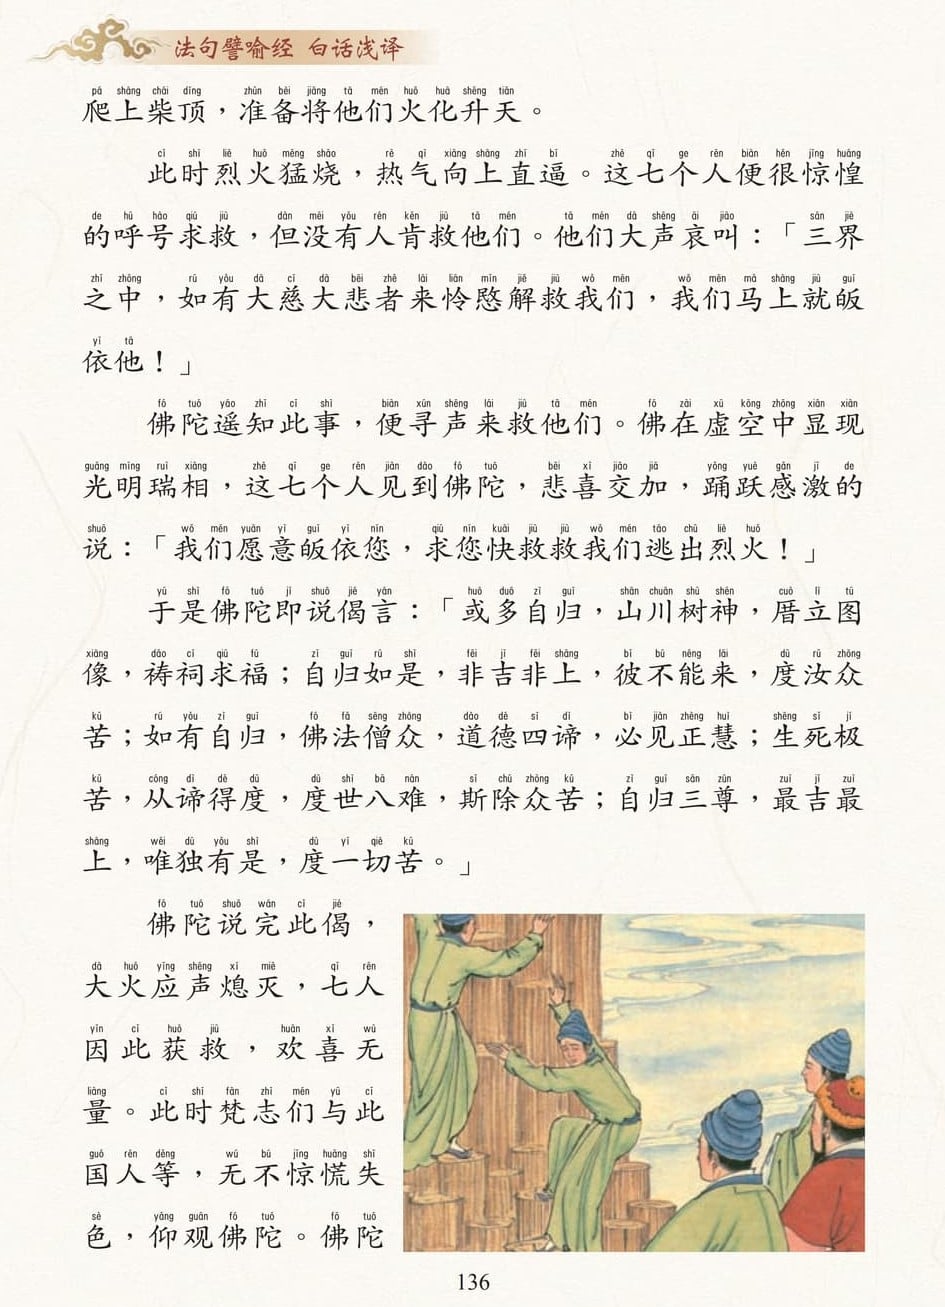 法句譬喻经 白话浅译
pá shàng chái dǐng zhǔn bèi jiāng tā mén huǒ huà shēng tiān
爬上柴顶，准备将他们火化升天。
cǐ shí liè huǒ měng shāo rè qì xiàng shàng zhí bī zhè qī ge rén biàn hěn jīng huáng
此时烈火猛烧，热气向上直逼。这七个人便很惊惶
de hū háo qiú jiù dàn méi yǒu rén kěn jiù tā mén tā mén dà shēng āi jiào sān jiè
的呼号求救，但没有人肯救他们。他们大声哀叫：「三界
zhī zhōng rú yǒu dà cí dà bēi zhě lái lián mǐn jiě jiù wǒ mén wǒ mén mǎ shàng jiù guī
之中，如有大慈大悲者来怜愍解救我们，我们马上就皈
yī tā
依他！」
fó tuó yáo zhī cǐ shì biàn xún shēng lái jiù tā mén fó zài xū kōng zhōng xiǎn xiàn
佛陀遥知此事，便寻声来救他们。佛在虚空中显现
guāng míng ruì xiàng zhè qī ge rén jiàn dào fó tuó bēi xǐ jiāo jiā yǒng yuè gǎn jī de
光明瑞相，这七个人见到佛陀，悲喜交加，踊跃感激的
shuō wǒ mén yuàn yì guī yī nín qiú nín kuài jiù jiù wǒ mén táo chū liè huǒ
说：「我们愿意皈依您，求您快救救我们逃出烈火！」
yú shì fó tuó jí shuō jié yán huò duō zì guī shān chuān shù shén cuò lì tú
于是佛陀即说偈言：「或多自归，山川树神，厝立图
xiàng dǎo cí qiú fú zì guī rú shì fēi jí fēi shàng bǐ bù néng lái dù rǔ zhòng
像，祷祠求福；自归如是，非吉非上，彼不能来，度汝众
kǔ rú yǒu zì guī fó fǎ sēng zhòng dào dé sì dì bì jiàn zhèng huì shēng sǐ jí
苦；如有自归，佛法僧众，道德四谛，必见正慧；生死极
kǔ cóng dì dé dù dù shì bā nàn sī chú zhòng kǔ zì guī sān zūn zuì jí zuì
苦，从谛得度，度世八难，斯除众苦；自归三尊，最吉最
shàng wéi dú yǒu shì dù yí qiè kǔ
上，唯独有是，度一切苦。」
fó tuó shuō wán cǐ jié
佛陀说完此偈，
dà huǒ yìng shēng xí miè qī rén
大火应声熄灭，七人
yīn cǐ huò jiù huān xǐ wú
因此获救，欢喜无
liàng cǐ shí fàn zhì mén yǔ cǐ
量。此时梵志们与此
guó rén děng wú bù jīng huāng shī
国人等，无不惊慌失
sè yǎng guān fó tuó fó tuó
色，仰观佛陀。佛陀
136